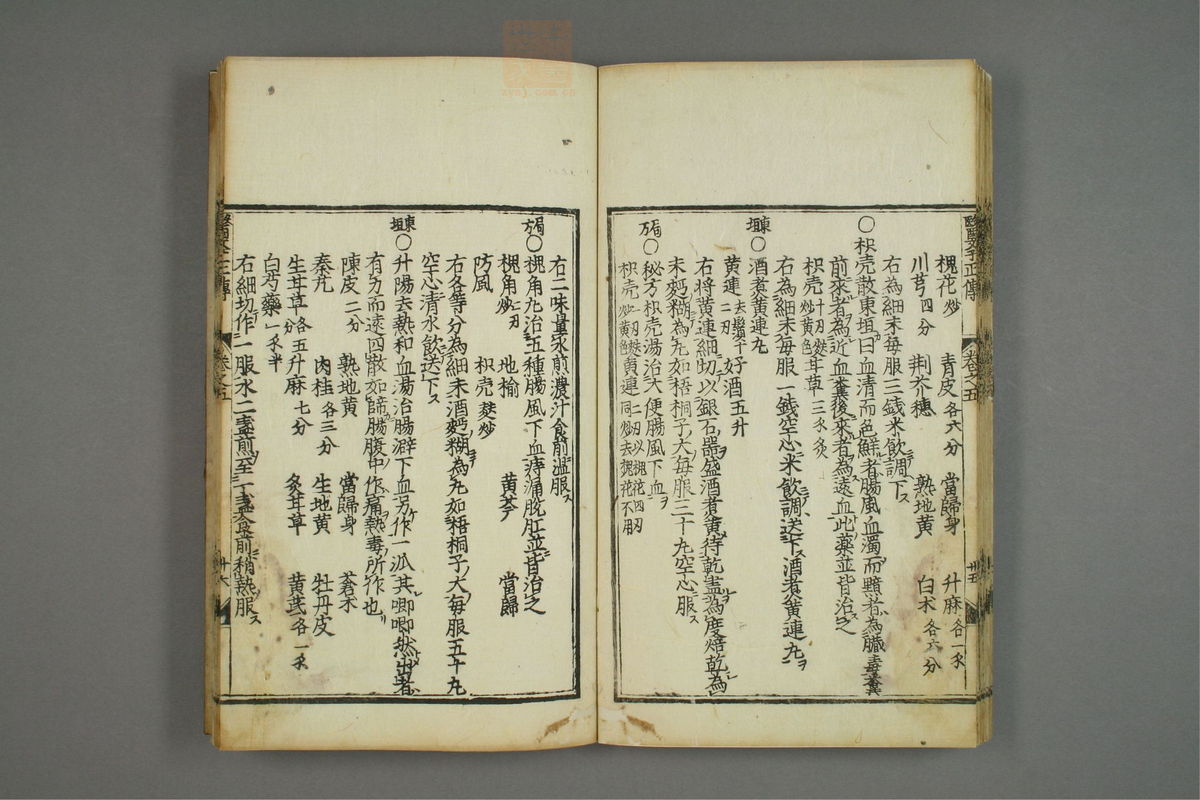 醫學正傳 卷之五 廿五
槐花炒 青皮各六分 當歸身 升麻各一戔
川芎四分 荆芥穗 熟地黄 白朮各六分
右為細末每服三錢米飲調下
○枳壳散東垣曰血清而色鮮者腸風血濁而黯者為臟毒糞
前來者為近血糞後來者為遠血此藥並皆治之
枳壳 炒黄色 甘草三戔炙
右為細末每服一錢空心米飲調送下酒煮黄連丸
東垣○酒煮黄連丸
黄連二刄去鬚 好酒五升
右將黄連細切以銀石器盛酒煮黄待乾盡為度焙乾為
末麪糊為丸如梧桐子大每服三十丸空心服
局方○秘方枳壳湯治大便腸風下血
枳壳一刄炒黄色 黄連二刄以槐花四刄同炒去槐花不用
右二味量水煎濃汁食前溫服
局方○槐角丸治五種腸風下血痔漏脫肛並皆治之
槐角炒一刄 地榆 黄芩 當歸
防風 枳壳麸炒
右各等分為細末酒麪糊為丸如梧桐子大每服五十丸
空心清水飲送下
東垣○升陽去熱和血湯治腸澼下血另作一派其唧唧然出者
有力而遠四散如篩腸腹中作痛熱毒所作也
陳皮二分 熟地黄 當歸身 蒼朮
秦艽 肉桂各三分 生地黄 牡丹皮
生甘草各五分 升麻七分 炙甘草 黄芪各一戔
白芍藥一戔半
右細切作一服水二盞煎至一盞食前稍熱服
醫學正傳 卷之五 廿六